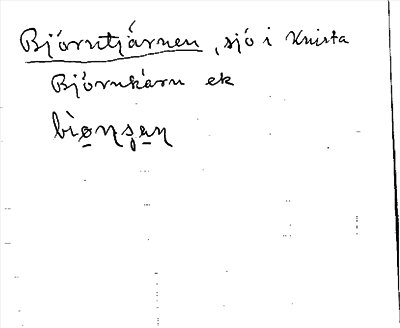 Björntjärnen, sjö i Knista
Björnkärn ek
bìo̠nʂæ̠n